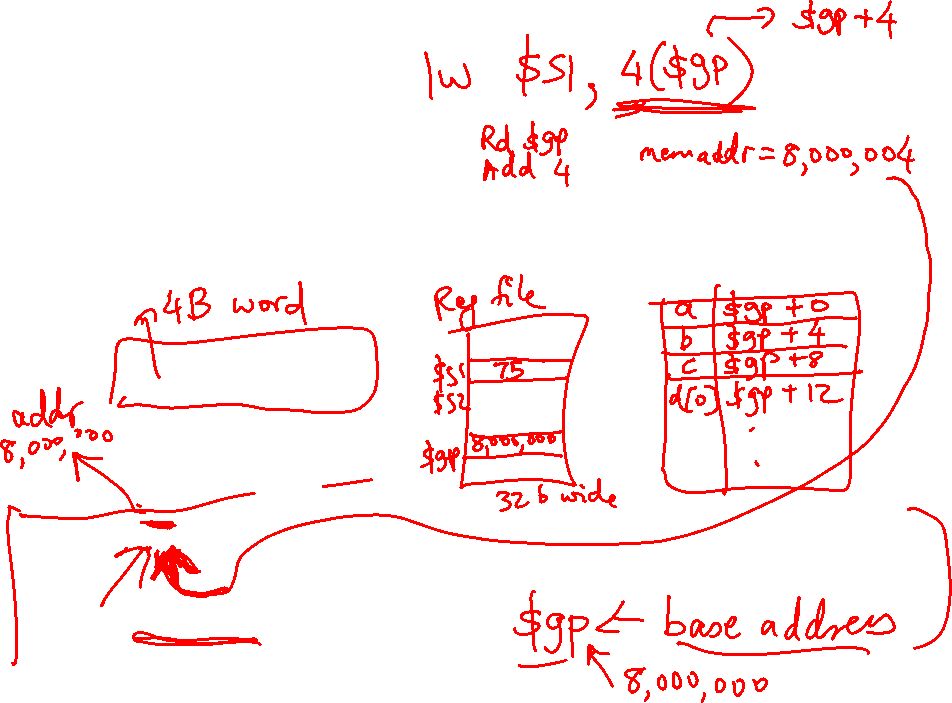 $gp+4
lw $S1, 4($gp)
Rd $gp
Add 4
memaddr = 8,000,004
4B word
Reg file
$S1 75
$S2
$gp 8,000,000
32 b wide
a $gp + 0
b $gp + 4
c $gp + 8
d[0] $gp + 12
addr
8,000,000
$gp ← base address
8,000,000